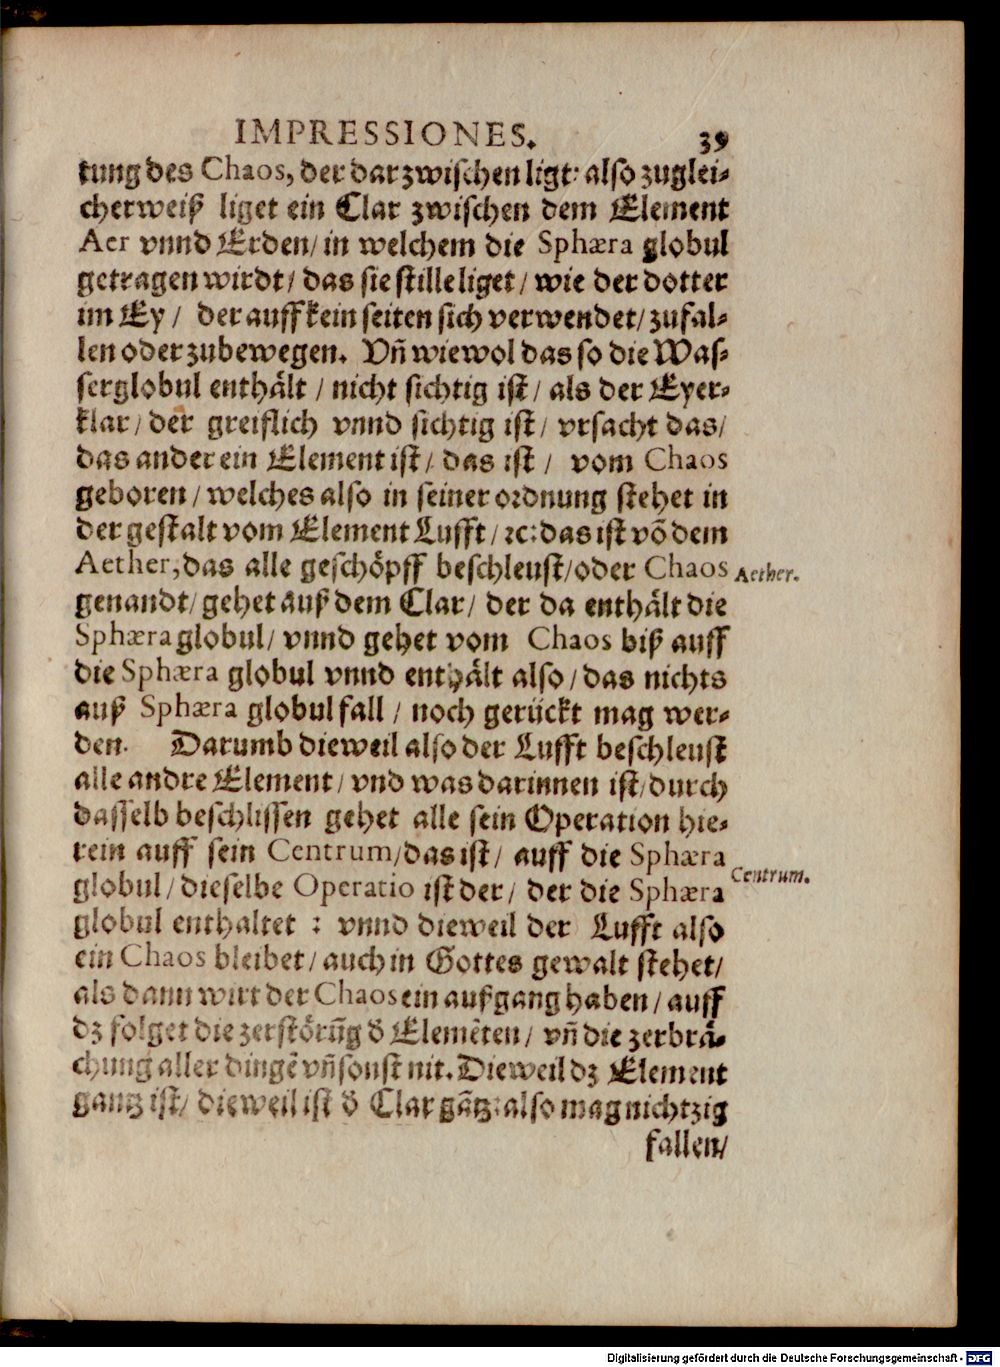 IMPRESSIONES. 39
tung des Chaos, der darzwischen ligt: also zuglei-
cherweiß liget ein Clar zwischen dem Element
Aer vnnd Erden/ in welchem die Sphæra globul
getragen wirdt/ das sie stille liget/ wie der dotter
im Ey/ der auff kein seiten sich verwendet/ zufal-
len oder zubewegen. Vñ wiewol das so die Was-
serglobul enthält/ nicht sichtig ist/ als der Eyer-
klar/ der greiflich vnnd sichtig ist/ vrsacht das/
das ander ein Element ist/ das ist/ vom Chaos
geboren/ welches also in seiner ordnung stehet in
der gestalt vom Element Lufft/ ꝛc: das ist võ dem
Aether, das alle geschöpff beschleust/ oder Chaos
Aether.
genandt/ gehet auß dem Clar/ der da enthält die
Sphæra globul/ vnnd gehet vom Chaos biß auff
die Sphæra globul vnnd enthält also/ das nichts
auß Sphæra globul fall/ noch gerückt mag wer-
den. Darumb dieweil also der Lufft beschleust
alle andre Element/ vnd was darinnen ist/ durch
dasselb beschlissen gehet alle sein Operation hie-
rein auff sein Centrum/ das ist/ auff die Sphæra
Centrum.
globul/ dieselbe Operatio ist der/ der die Sphæra
globul enthaltet : vnnd dieweil der Lufft also
ein Chaos bleibet/ auch in Gottes gewalt stehet/
als dann wirt der Chaos ein außgang haben/ auff
dz folget die zerstörũg ď Elemẽten/ vñ die zerbrä-
chung aller dingẽ vñ sonst nit. Dieweil dz Element
gantz ist/ dieweil ist ď Clar gãtz: also mag nichtzig
fallen/
Digitalisierung gefördert durch die Deutsche Forschungsgemeinschaft - DFG